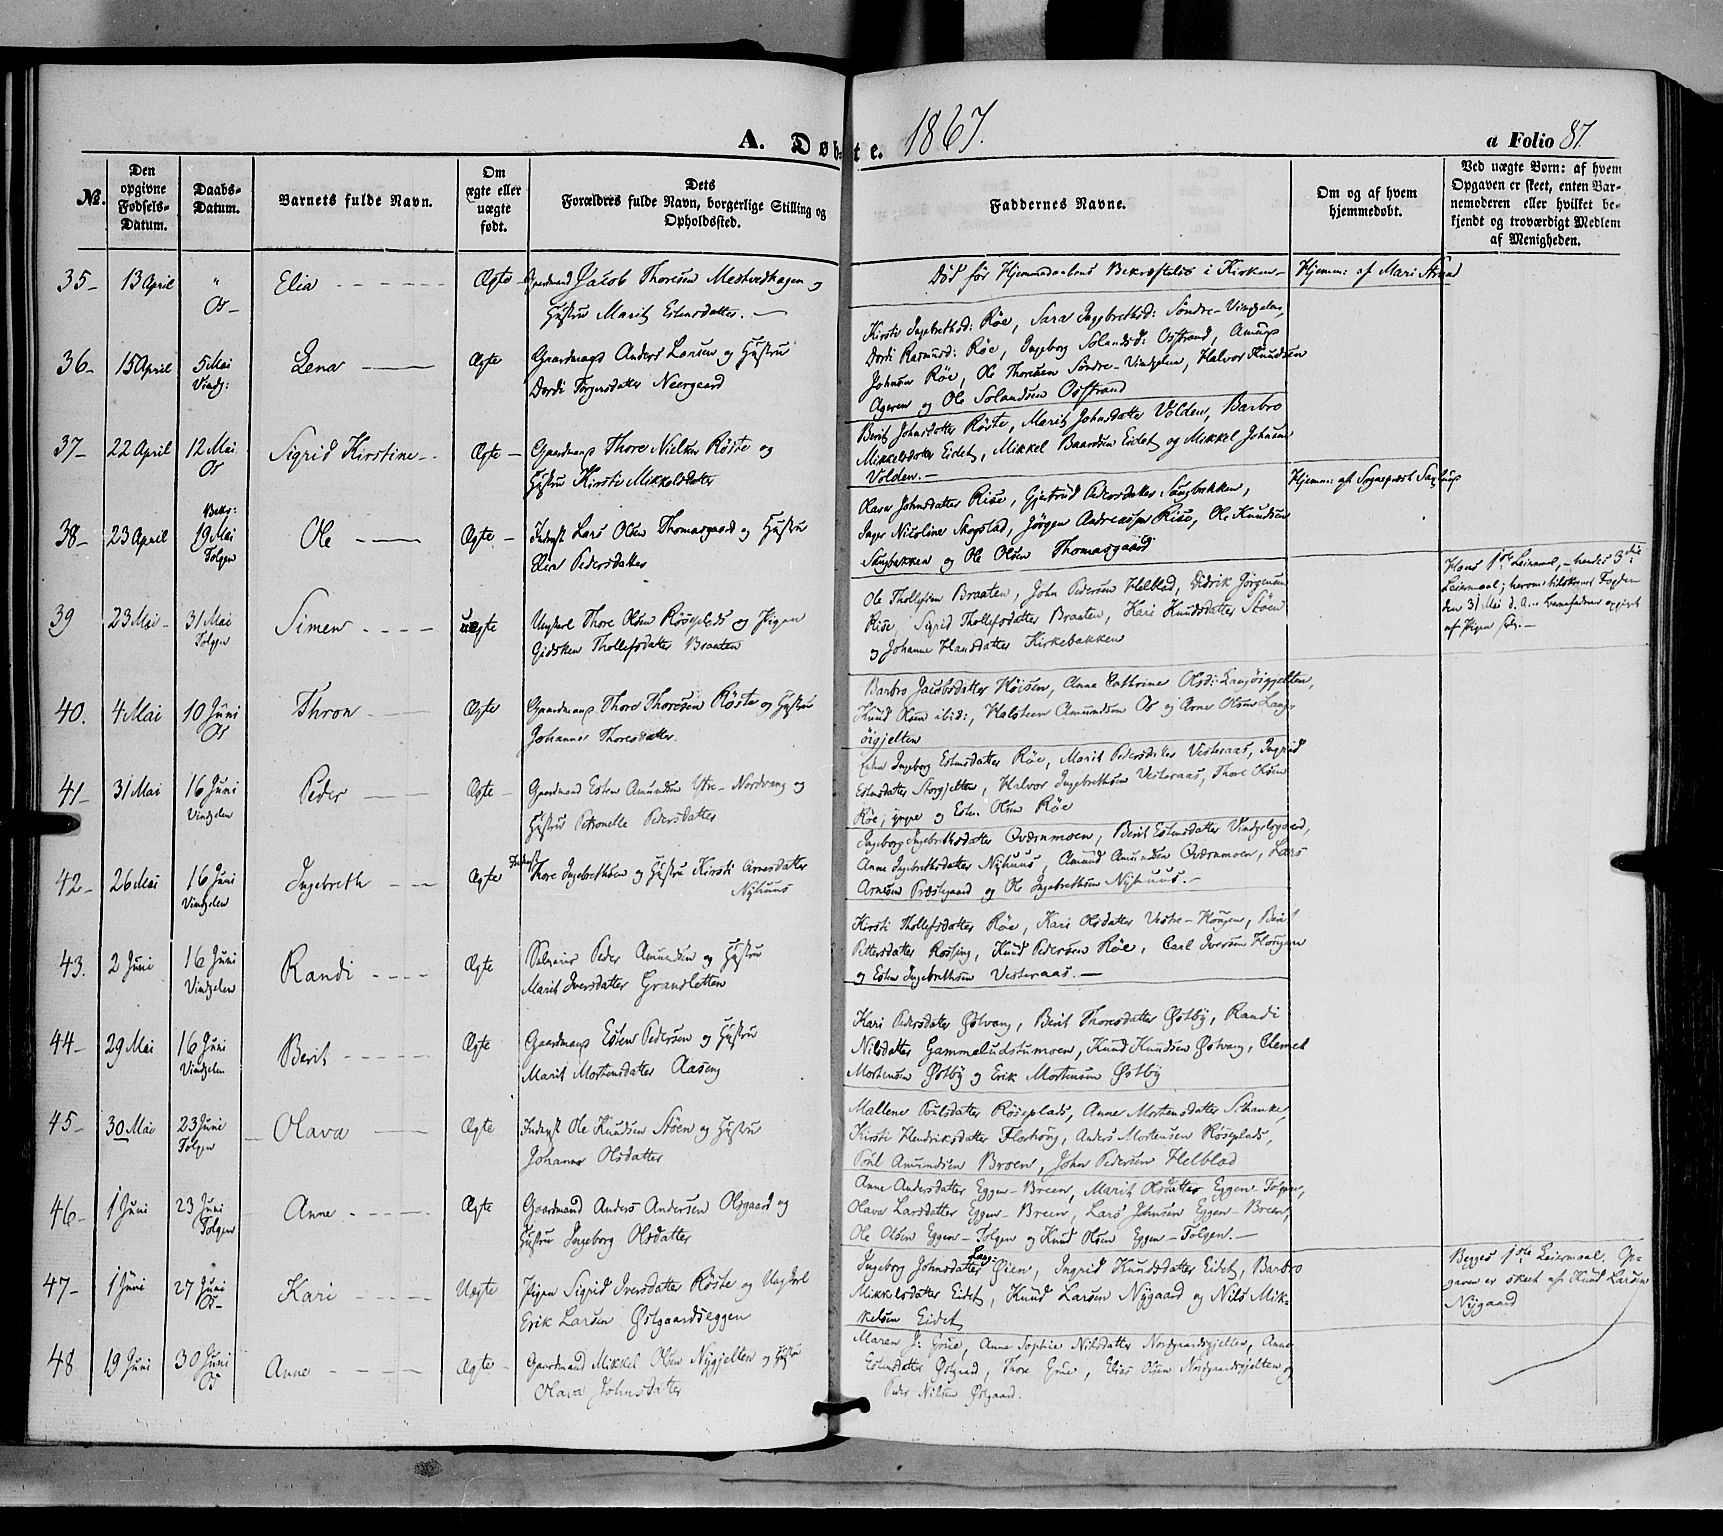 A. Døbte. 1867.
a Folio 87.
№.
Den opgivne Fødsels-Datum.
Daabs-Datum.
Barnets fulde Navn.
Om ægte eller uægte født.
Dets Forældres fulde Navn, borgerlige Stilling og Opholdssted.
Faddernes Navne.
Om og af hvem hjemmedøbt.
Ved uægte Børn: af hvem Opgaven er skeet, enten Barnemoderen eller hvilket bekjendt og troværdigt Medlem af Menigheden.
35- 13 April " Os- Elia Ægte- Gaardmand Jacob Thoresen Mestvedhagen og
Hustru Marit Estensdatter.-
Død før Hjemmedaabens Bekræftelse i Kirken-
Hjemm: af Mari Strand
36- 15 April 5 Mai Vindg: Lena Ægte Gaardmand Anders Larsen og Hustru
Dordi Torgersdatter Neergaard
Kirsti Ingebrethsd: Røe, Sara Ingebrethsd: Søndre-Vingelen,
Dordi Rasmusd: Røe, Ingeborg Solandsd: Osstrand, Amund
Johnsen Røe, Ole Thoresen Søndre-Vindgelen, Halvor Knudsen
Ageren og Ole Solandsen Osstrand
37- 22 April 12 Mai Os Sigrid Kirstine Ægte- Gaardmand Thore Nielsen Røste og
Hustru Kirsti Mikkelsdatter
Berit Johnsdatter Røste, Marit Johnsdatter Volden, Barbro
Mikkelsdatter Eidet, Mikkel Baardsen Eidet og Mikkel Johnsen
Volden.-
38- 23 April Bekr: 19 Mai Tolgen Ole Ægte- Inderst Lars Olsen Thomasgaard og Hustru
Elen Pedersdatter
Olava Johnsdatter Riise, Gjertrud Pedersdatter Haugbakken,
Inger Nicoline Skogstad, Jørgen Andreassen Riise, Ole Knudsen
Haugbakken og Ole Olsen Thomasgaard
Hjemm: af Sognepræst
39 23 Mai- 31 Mai Tolgen Simen uægte Ungkarl Thore Olsen Røseplads og Pigen
Gidsken Thollefsdatter Braaten
Ole Thollefsen Braaten, John Pedersen Helblad, Didrik Jørgensen
Riise, Sigrid Thollefsdatter Braaten, Kari Knudsdatter Støen
og Johanne Hansdatter Kirkebakken
Hans 1ste Leiermaal,-hendes 3die
Leiermaal; herom tilskrevet Fogden
den 31 Mai d. A.- Barnefader opgivet
af Pigen selv.-
40. 4 Mai 10 Juni Os Thron Ægte Gaardmand Thore Thoresen Røste og Hustru
Johanne Thoresdatter.
Barbro Jacobsdatter Høisen, Anne Cathrine Olsd: Langøigjelten,
Knud Olsen ibid:, Halsteen Amundsen Os og Arne Olsen Lang-
øigjelten
41- 31 Mai 16 Juni Vindgelen Peder Ægte- Gaardmand Esten Amundsen Ytre-Nordvang og
Hustru Petronelle Pedersdatter
Enken Ingeborg Estensdatter Røe, Marit Pedersdatter Vesteraas, Ingrid
Estensdatter Storgjelten, Halvor Ingebrethsen Vesteraas, Thore Olsen
Røe, yngre og Esten Olsen Røe
42- 26 Mai 16 Juni Vindgelen Ingebreth Ægte Inderst Thore Ingebrethsen og Hustru Kirsti Arnesdatter
Nyhuus
Ingeborg Ingebrethsdatter Qværnmoen, Berit Estensdatter Vindgelsgaard,
Anne Ingebrethsdatter Nyhuus, Amund Amundsen Qværnmoen, Lars
Arnesen Præstegaard og Ole Ingebrethsen Nyhuus.-
43. 2 Juni 16 Juni Vindgelen Randi Ægte Selveier Peder Amundsen og Hustru
Marit Iversdatter Grandletten
Kirsti Thollefsdatter Røe, Kari Olsdatter Vestre-Hougen, Berit
Pettersdatter Rossing, Knud Pedersen Røe, Carl Iversen Hougen
og Esten Ingebrethsen Vesteraas.-
44- 29 Mai 16 Juni Vindgelen Berit Ægte Gaardmand Esten Pedersen og Hustru
Marit Mortensdatter Aaseng
Kari Pedersdatter Østvang, Berit Thoresdatter Østby, Randi
Nilsdatter Gammeludstumoen, Knud Knudsen Østvang, Clemet
Mortensen Østby og Erik Mortensen Østby
45- 30 Mai 23 Juni Tolgen Olava Ægte Inderst Ole Knudsen Støen og Hustru
Johanne Olsdatter
Mallene Poulsdatter Røseplads, Anne Mortensdatter Schanke,
Kirsti Hendriksdatter Florhoug, Anders Mortensen Røseplads,
Poul Amundsen Broen, John Pedersen Helblad
46- 1 Juni 23 Juni Tolgen Anne Ægte Gaardmand Anders Andersen Olsgaard og
Hustru Ingeborg Olsdatter
Anne Andersdatter Eggen-Breen, Marit Olsdatter Eggen-Tolgen,
Olava Larsdatter Eggen-Breen, Lars Johnsen Eggen-Breen,
Ole Olsen Eggen-Tolgen og Knud Olsen Eggen-Tolgen.-
47- 1 Juni 27 Juni Os- Kari Uægte Pigen Sigrid Iversdatter Røste og Ungkarl
Erik Larsen Østgaardseggen
Ingeborg Johnsdatter Lang-Øien, Ingrid Knudsdatter Eidet, Barbro
Mikkelsdatter Eidet, Knud Larsen Nygaard og Nils Mik-
kelsen Eidet
Begges 1ste Leiermaal. Op-
gaven er skeet af Knud Larsen
Nygaard
48 19 Juni 30 Juni Os Anne Ægte- Gaardmand Mikkel Olsen Nygjelten og Hustru
Olava Johnsdatter
Maren J: Grue, Anne Sophie Nilsdatter Nordgaardsgjelten, Anne
Estensdatter Østgaard, Thore Grue, Elias Olsen Nordgaardsgjelten og
Peder Nilsen Østgaard.